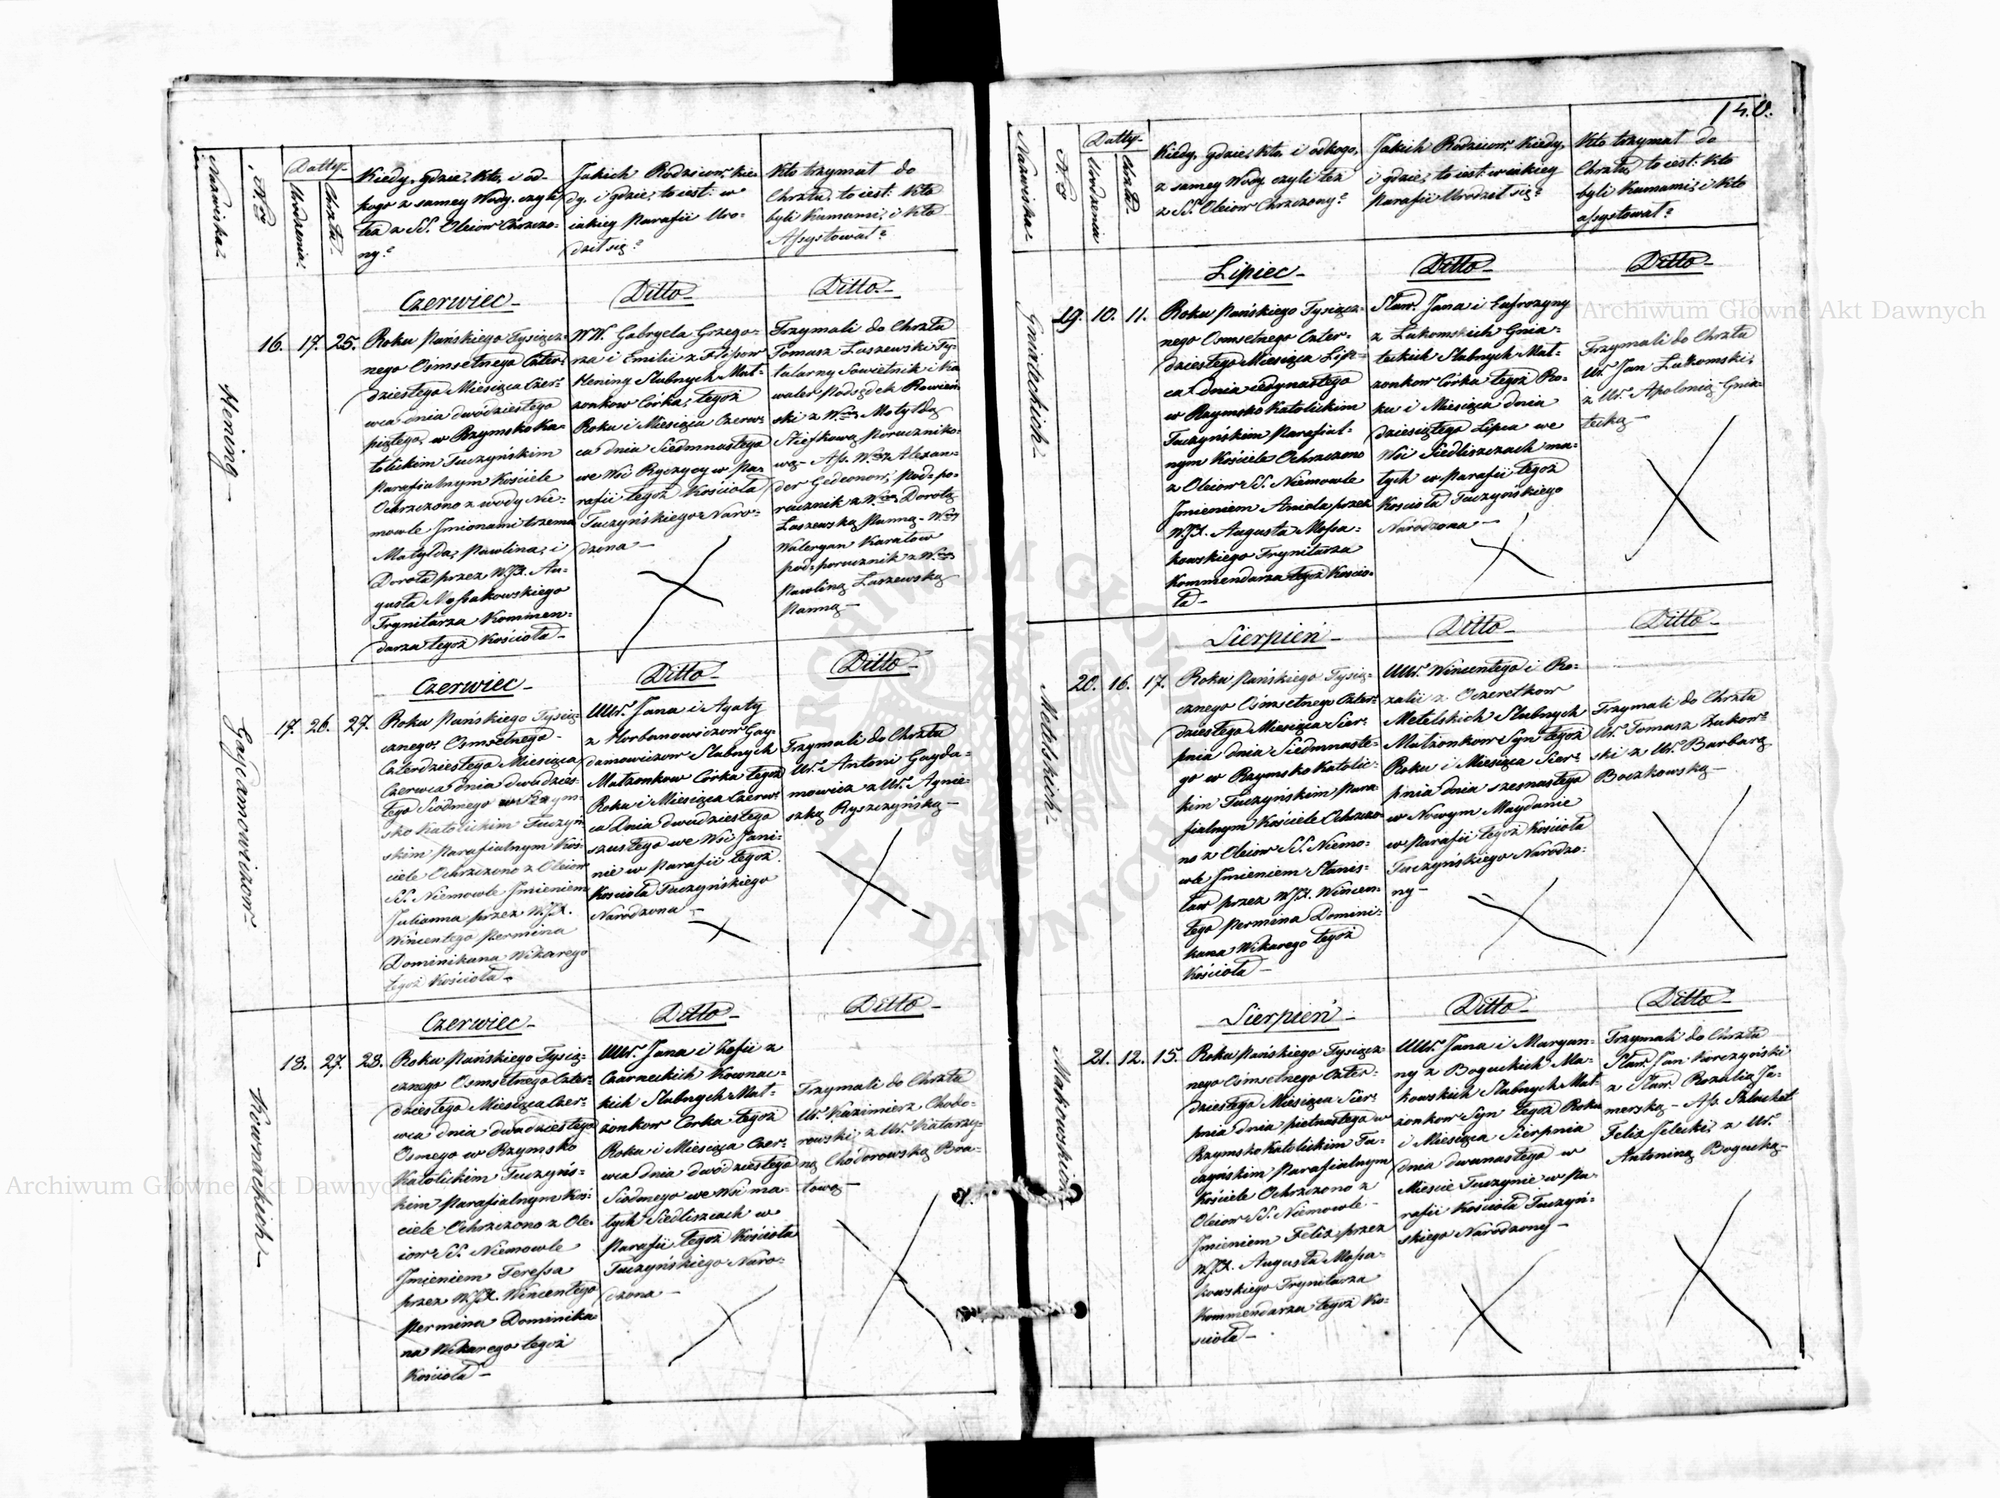 Nazwiska
N. ro
Datty
Urodzenia
Chrztu
Kiedy, gdzie, kto, i od-
kogo z samey Wody, czyli
też z SS. Oleiow Chrzczo-
ny?
Jakich Rodziców, kie-
dy, i gdzie, to iest: w
iakiey Parafii Uro-
dził się?
Kto trzymał do
Chrztu, to iest: Kto
byli Kumami, i Kto
Assystował?
Hening
16. 17. 25.
Czerwiec
Roku Pańskiego Tysiącz-
nego Osmsetnego Czter-
dziestego Miesiąca Czer-
wca dnia dwódziestego
piątego, w Rzymsko Ka-
tolickim Tuczyńskim
Parafialnym Kościele
Ochrzczono z wody Nie-
mowle Imionami trzema
Matylda, Pawlina, i
Dorota przez WJX. Au-
gusta Mossakowskiego
Trynitarza Kommen-
darza tegoż Kościoła
Ditto
WW. Gabryela Grzego-
rza i Emilii z
Hening Slubnych Mał-
zonkow Córka, tegoż
Roku i Miesiąca Czerw-
ca dnia Siedmnastego
we Wsi Ryczycy w Pa-
rafii tegoż Kościoła
Tuczyńskiego Naro-
dzona
Ditto
Trzymali do Chrztu
Tomasz Łaszewski Ty-
tularny Sowietnik i Ka
waler Podsędek Rowień
ski z Motyldą
Poruczniko-
wą Ass. Alexan-
der Gedeonow, Pod-po-
rucznik z Dorotą
Łaszewską Panną
Waleryan Karatow
pod-porucznik z
Pawliną Łaszewską
Panną
Gaydamowiczow
17. 26. 27.
Czerwiec
Roku Pańskiego Tysią-
cznego Osmsetnego
Czterdziestego Miesiąca
Czerwca dnia dwudzies-
tego Siodmego w Rzym-
sko Katolickim Tuczyń
skim Parafialnym Koś-
ciele Ochrzczono z Oleiow
SS. Niemowle Imieniem
Julianna przez WJX.
Wincentego Permina
Dominikana Wikarego
tegoż Kościoła
Ditto
UUr. Jana i Agaty
z Horbanowiczow Gay-
damowiczow Slubnych
Małzonkow Córka tegoż
Roku i Miesiąca Czerw-
ca Dnia dwudziestego
szustego we Wsi Jani-
nie w Parafii tegoż
Kościoła Tuczyńskiego
Narodzona
Ditto
Trzymali do Chrztu
Ur. Antoni Gayda-
mowicz z Ur. Agnie-
szką Ryszczyńską
Kownackich
18. 27. 28.
Czerwiec
Roku Pańskiego Tysią-
cznego Osmsetnego Czter-
dziestego Miesiąca Czer-
wca dnia dwadziestego
Osmego w Rzymsko
Katolickim Tuczyńs-
kim Parafialnym Koś-
ciele Ochrzczono z Ole-
iow SS. Niemowle
Imieniem Teressa
przez WJX. Wincentego
Permina Dominika
na Wikarego tegoż
Kościoła
Ditto
UUr. Jana i Zofii z
Czarneckich Kownac-
kich Slubnych Mał-
zonkow Corka tegoż
Roku i Miesiąca Czer-
wca dnia dwodziestego
Siodmego we Wsi ma-
łych Siedliszczach w
Parafii tegoż Kościoła
Tuczyńskiego Naro-
dzona
Ditto
Trzymali do Chrztu
Ur. Kazimierz Chodo-
rowski, z Ur. Katarzy-
ną Chodorowską Bra-
tową
140.
Nazwiska
N. ro
Datty
Urodzenia
Chrztu
Kiedy, gdzie, Kto, i od kogo,
z samey Wody, czyli też
z SS. Oleiow Chrzczony?
Jakich Rodziców, Kiedy,
i gdzie, to iest: w iakiey
Parafii Urodził się?
Kto trzymał do
Chrztu, to iest: Kto
byli Kumami, i Kto
assystował?
Gniteckich
19. 10. 11.
Lipiec
Roku Pańskiego Tysiącz-
nego Osmsetnego Czter-
dziestego Miesiąca Lip-
ca dnia iedynastego
w Rzymsko Katolickim
Tuczyńskim Parafial-
nym Kościele Ochrzczono
z Oleiow SS. Niemowle
Imieniem Aniela przez
WJX. Augusta Mossa-
kowskiego Trynitarza
Kommendarza tegoż Kościo-
ła
Ditto
Sław. Jana i Eufrozyny
z Łukomskich Gnia-
teckich Slubnych Mał-
zonkow Córka tegoż Ro-
ku i Miesiąca dnia
dziesiątego Lipca we
Wsi Siedliszczach ma-
łych w Parafii tegoż
Kościoła Tuczyńskiego
Narodzona
Ditto
Trzymali do Chrztu
Ur. Jan Łukomski,
z Ur. Apolonią Gnia-
tecką
Metelskich
20. 16. 17.
Sierpień
Roku Pańskiego Tysią-
cznego Osmsetnego Czter-
dziestego Miesiąca Sier-
pnia dnia Siedmnaste-
go w Rzymsko Katolic-
kim Tuczyńskim Para-
fialnym Kościele Ochrzczo-
no z Oleiow SS. Niemo-
wle Imieniem Stanis-
ław przez WJX. Wincen-
tego Permina Domini-
kana Wikarego tegoż
Kościoła
Ditto
UUr. Wincentego i Ro-
zalii z Oczeretkow
Metelskich Slubnych
Małzonkow Syn tegoż
Roku i Miesiąca Sier-
pnia dnia szesnastego
w Nowym Maydanie
w Parafii tegoż Kościoła
Tuczyńskiego Narodzo-
ny
Ditto
Trzymali do Chrztu
Ur. Tomasz Żukow-
ski z Ur. Barbarą
Boczkowską
Makowskich
21. 12. 15.
Sierpień
Roku Pańskiego Tysiącz
nego Osmsetnego Czter-
dziestego Miesiąca Sier-
pnia dnia pietnastego w
Rzymsko Katolickim Tu-
czyńskim Parafialnym
Kościele Ochrzczono z
Oleiow SS. Niemowle
Imieniem Felix przez
WJX. Augusta Mossa-
kowskiego Trynitarza
Kommendarza tegoż Ko-
scioła
Ditto
UUr. Jana i Maryan-
ny z Boguckich Ma-
kowskich Slubnych Mał-
zonkow Syn tegoż Roku
i Miesiąca Sierpnia
dnia dwunastego w
Miescie Tuczynie w Pa-
rafii Kościoła Tuczyń-
skiego Narodzony
Ditto
Trzymali do Chrztu
Sław. Jan Korczyński
z Sław. Rozalią Ja-
merską Ass. Szlachet
Felix Jelecki z Ur.
Antoniną Bogucką
Archiwum Główne Akt Dawnych
Archiwum Główne Akt Dawnych
ARCHIWUM GŁÓWNE AKT DAWNYCH